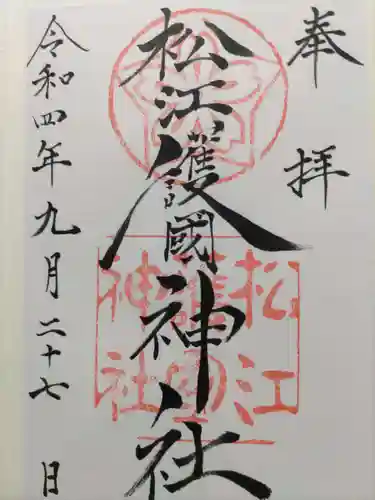 奉拝
松江護國神社
令和四年九月二十七日
松江
護國
神社